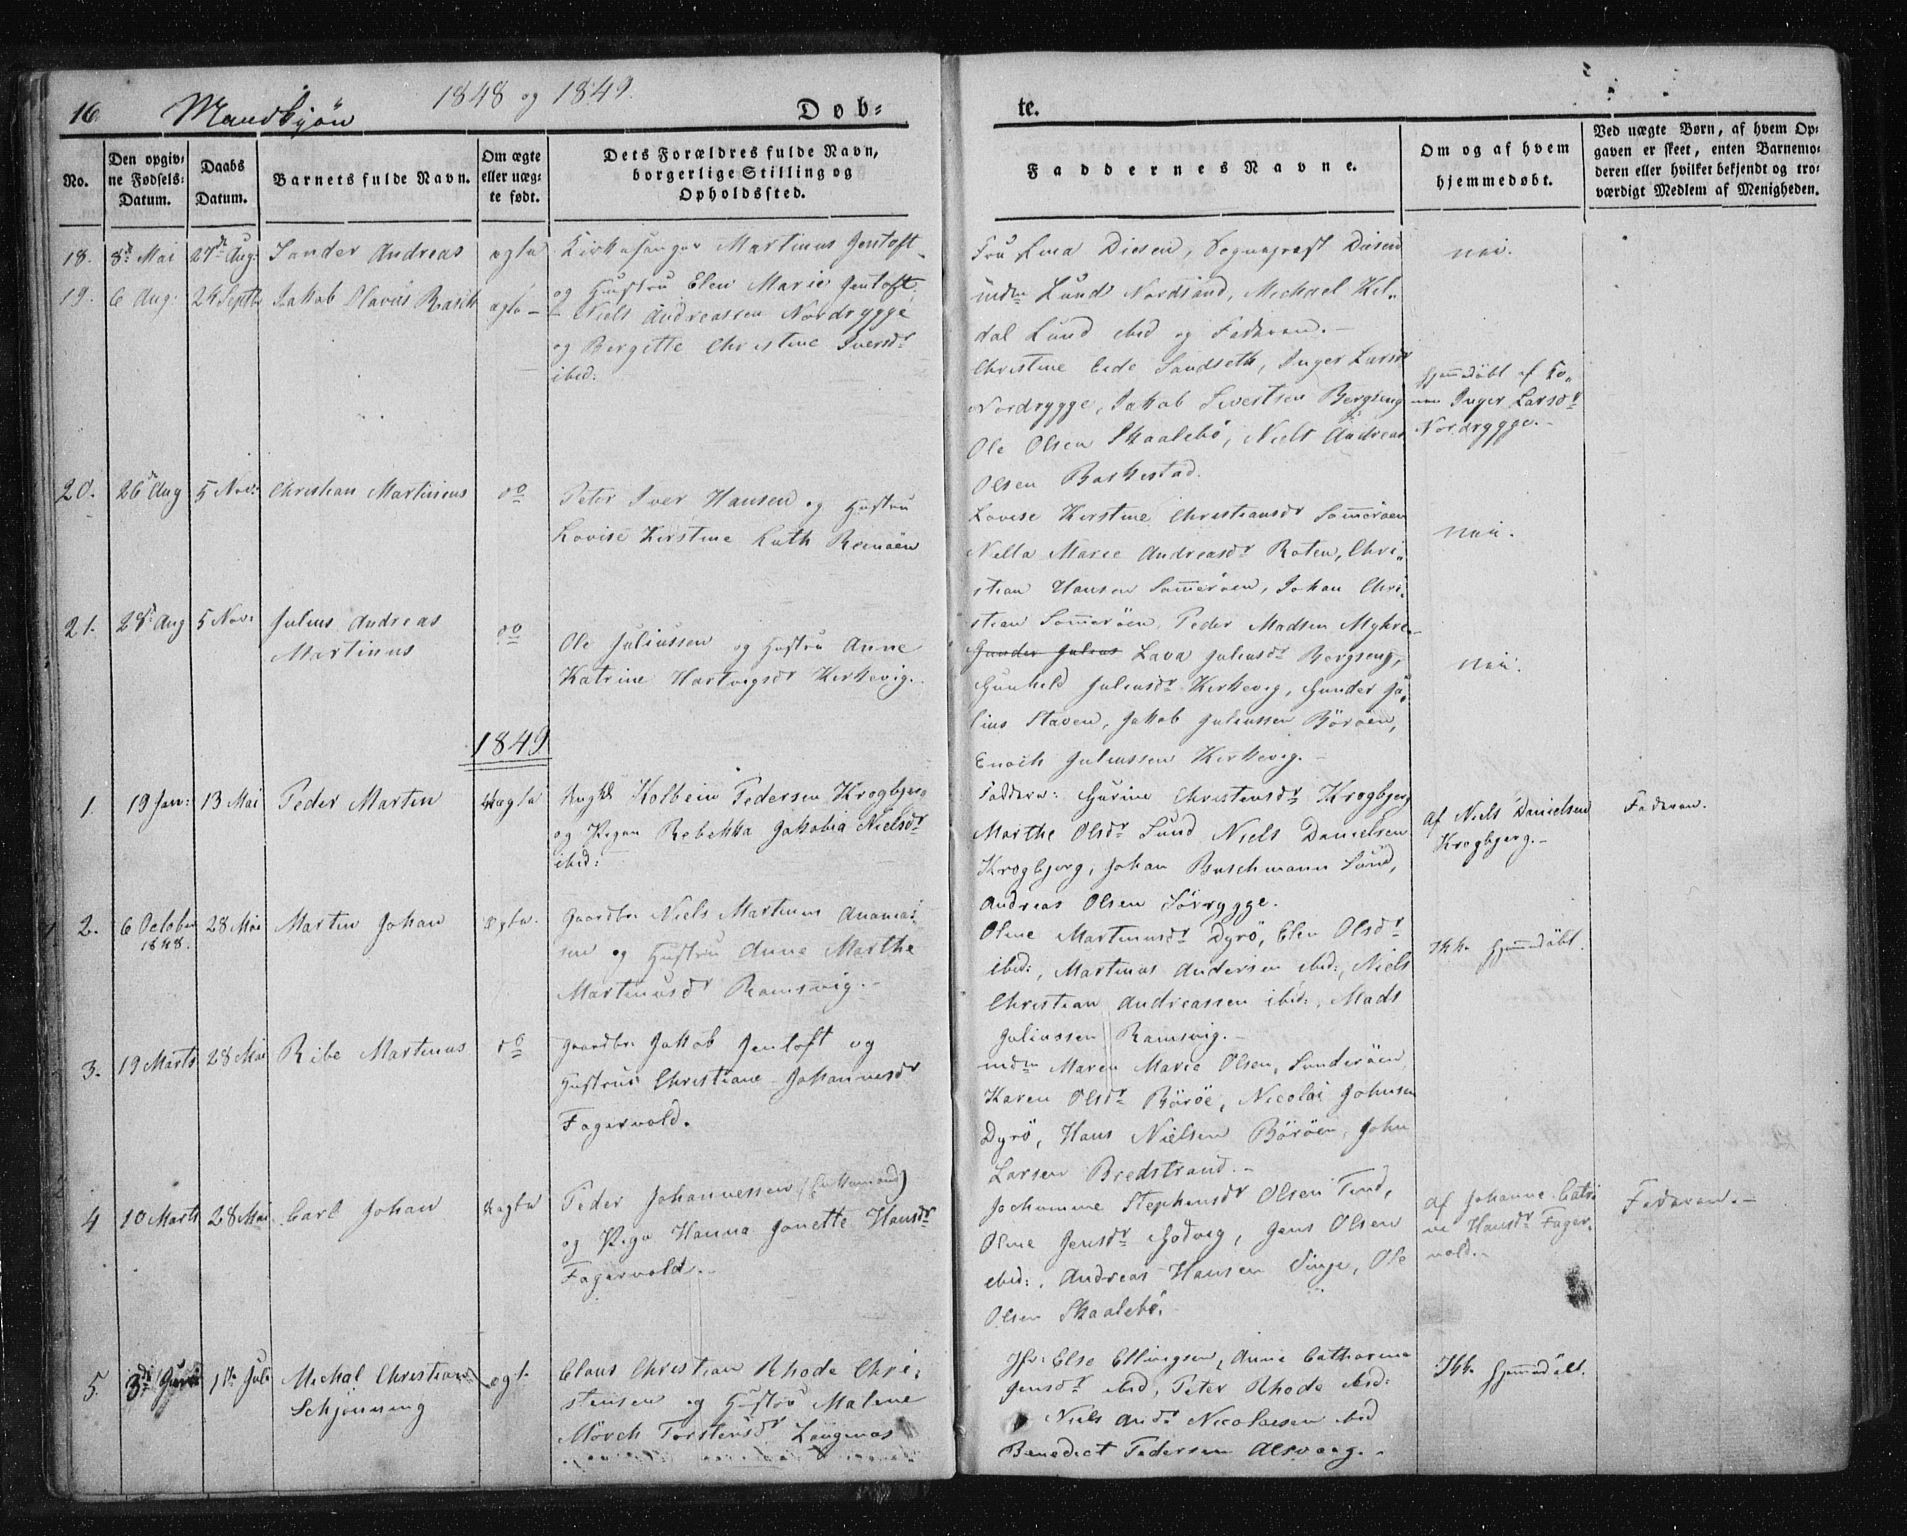 16 Mandkjøn 1848 og 1849.
Døb-
te.
No.
Den opgiv-
ne Fødsels-
Datum.
Daabs
Datum.
Barnets fulde Navn.
Om ægte
eller uæg-
te født.
Dets Forældres fulde Navn,
borgerlige Stilling og
Opholdssted.
Faddernes Navne.
Om og af hvem
hjemmedøbt.
Ved uægte Børn, af hvem Op-
gaven er skeet, enten Barnemo-
deren eller hvilket bekjendt og tro-
værdigt Medlem af Menigheden.
18. 8de Mai 27de Aug: Sander Andreas ægte
Kirkesanger Martinus Jentoft
og Hustru Elen Marie Jentoft.
Fru Diesen, Sognepræst Diesen
mdm Lund Nordsand, Michael Kil-
dal Lund ibid og Faderen.
nei.
19. 6 Aug: 24 Septb Jakob Olavus Rasch ægte
Niels Andreassen Nordrygge
og Bergitte Christine Iversdr
ibid:
Christine Eide Sandseth, Inger Larsdr
Nordrygge, Jakob Sivertsen Bergseng
Ole Olsen Skaalebø, Niels Andreas
Olsen Baskestad.
hjemmedøbt af Ko-
nen Inger Larsdr
Nordrygge.
20. 26de Aug 5 Nov: Christian Martinus do
Peter Iver Hansen og Hustru
Lovise Kirstine
Lovise Kirstine Christiansdr Sommerøen
Nella Marie Andreasdr Roten, Chri-
stian Hansen Sommerøen, Johan Chri-
stian Sommerøen, Peder Madsen Myhre
nei.
21. 28de Aug 5 Nov: Julius Andreas
Martinus
do
Ole Juliussen og Hustru Anne
Katrine Hartvigsdr Kirkevig.
Gunder Julius Lava Juliusdr Bergseng,
Gunhild Juliusdr Kirkevig, Gunder Ju-
lius Staven, Jakob Juliussen Börøen,
Enoch Juliussen Kirkevig.
nei.
1849
1. 19 Jan: 13 Mai Peder Martin uægte
Ungkl Kolbein Pedersen Krogbjerg
og Pigen Rebekka Jakobia Nielsdr
ibid:
Faddere: Gurine Christensdr Krogbjerg
Marthe Olsdr Sund Niels Danielsen
Krogbjerg, Johan Buschmann Sund,
Andreas Olsen Sörrygge.
af Niels Danielsen
Krogbjerg.
Faderen.
2. 6 October
1848.
28 Mai Martin Johan ægte.
Gaardbr Niels Martinus Ananias-
sen og Hustru Anne Marthe
Martinusdr Ramsvig.
Oline Martinusdr Dyrö, Elen Olsdr
ibid:, Martinus Andersen ibid:, Niels
Christian Andreassen ibid:, Mads
Juliussen Ramsvig.
Ikke hjemmedøbt.
3. 19 Marts 28 Mai Ribe Martinus do
Gaardbr Jakob Jentoft og
Hustrue Christiane Johannesdr
Fagervold.
mdm Maren Marie Olsen, Sanderöen
Karen Olsdr Böröe, Nicolai Johnsen
Dyrö, Hans Nielsen Böröen, John
Larsen Bredstrand.
4 10 Marts 28 Mai Carl Johan uægte
Peder Johannessen (Enkemand)
og Pige Hanna Jonette Hansdr
Fagervold.
Jochumine Stephensdr Olsen Tind,
Oline Jensdr Godvig, Jens Olsen
ibid:, Andreas Hansen Tinje, Ole
Olsen Skaalebö.
af Johanne Catri
ne Hansdr Fager-
vold.
Faderen.
5. 1ste Juli Michal Christian
Schjønning
ægte.
Claus Christian Rhode Chri-
stensen og Hustru Malene
Mörch Torstensdr Langenæs
Else Ellingsen, Anne Catharina
Jensdr ibid, Peter Rhode ibid:
Niels Andr Nicolaisen ibid
Benedict Pedersen Alsvaag.
Ikke hjemmedøbt.